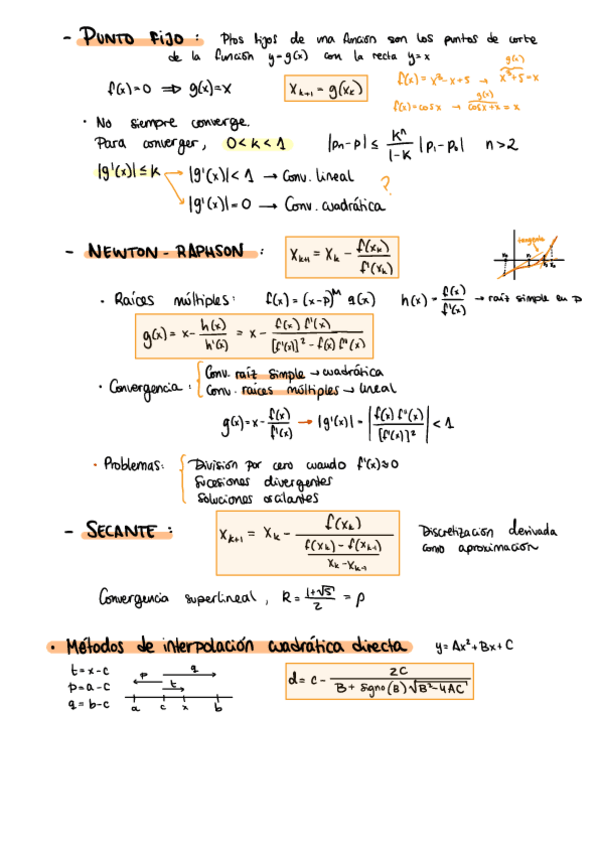 - PUNTO FIJO : Ptos fijos de una función son los puntos de corte
de la función y=g(x) con la recta y=x
f(x)=0 ⇒ g(x)=x
X_{k+1} = g(x_k)
g(x)
f(x) = x³-x+5 → x³+5=x
g(x)
f(x)=cosx → cosx+x = x
· No siempre converge.
Para converger, 0<k<1 |pn-p| ≤ Kⁿ/(1-K) |p₁-p₀| n>2
|g'(x)| ≤ k → |g'(x)|<1 → Conv. lineal
?
→ |g'(x)|=0 → Conv. cuadrática
- NEWTON-RAPHSON : X_{k+1} = X_k - f(x_k)/f'(x_k)
tangente
· Raíces múltiples: f(x) = (x-p)^M q(x) h(x) = f(x)/f'(x) → raíz simple en p
g(x) = x - h(x)/h'(x) = x - f(x) f'(x)/([f'(x)]² - f(x) f''(x))
· Convergencia : { Conv. raíz simple → cuadrática
Conv. raíces múltiples → lineal
g(x) = x - f(x)/f'(x) → |g'(x)| = |f(x) f''(x)/[f'(x)]²| < 1
· Problemas: { División por cero cuando f'(x)≈0
Sucesiones divergentes
Soluciones oscilantes
- SECANTE : X_{k+1} = X_k - f(x_k)/((f(x_k) - f(x_{k-1}))/(x_k - x_{k-1}))
Discretización derivada
como aproximación
Convergencia superlineal, R = (1+√5)/2 = p
· Métodos de interpolación cuadrática directa y = Ax²+Bx+C
t = x-c
p = a-c
q = b-c
p q
t
a c x b
d = c - 2C/(B + signo(B) √(B²-4AC))